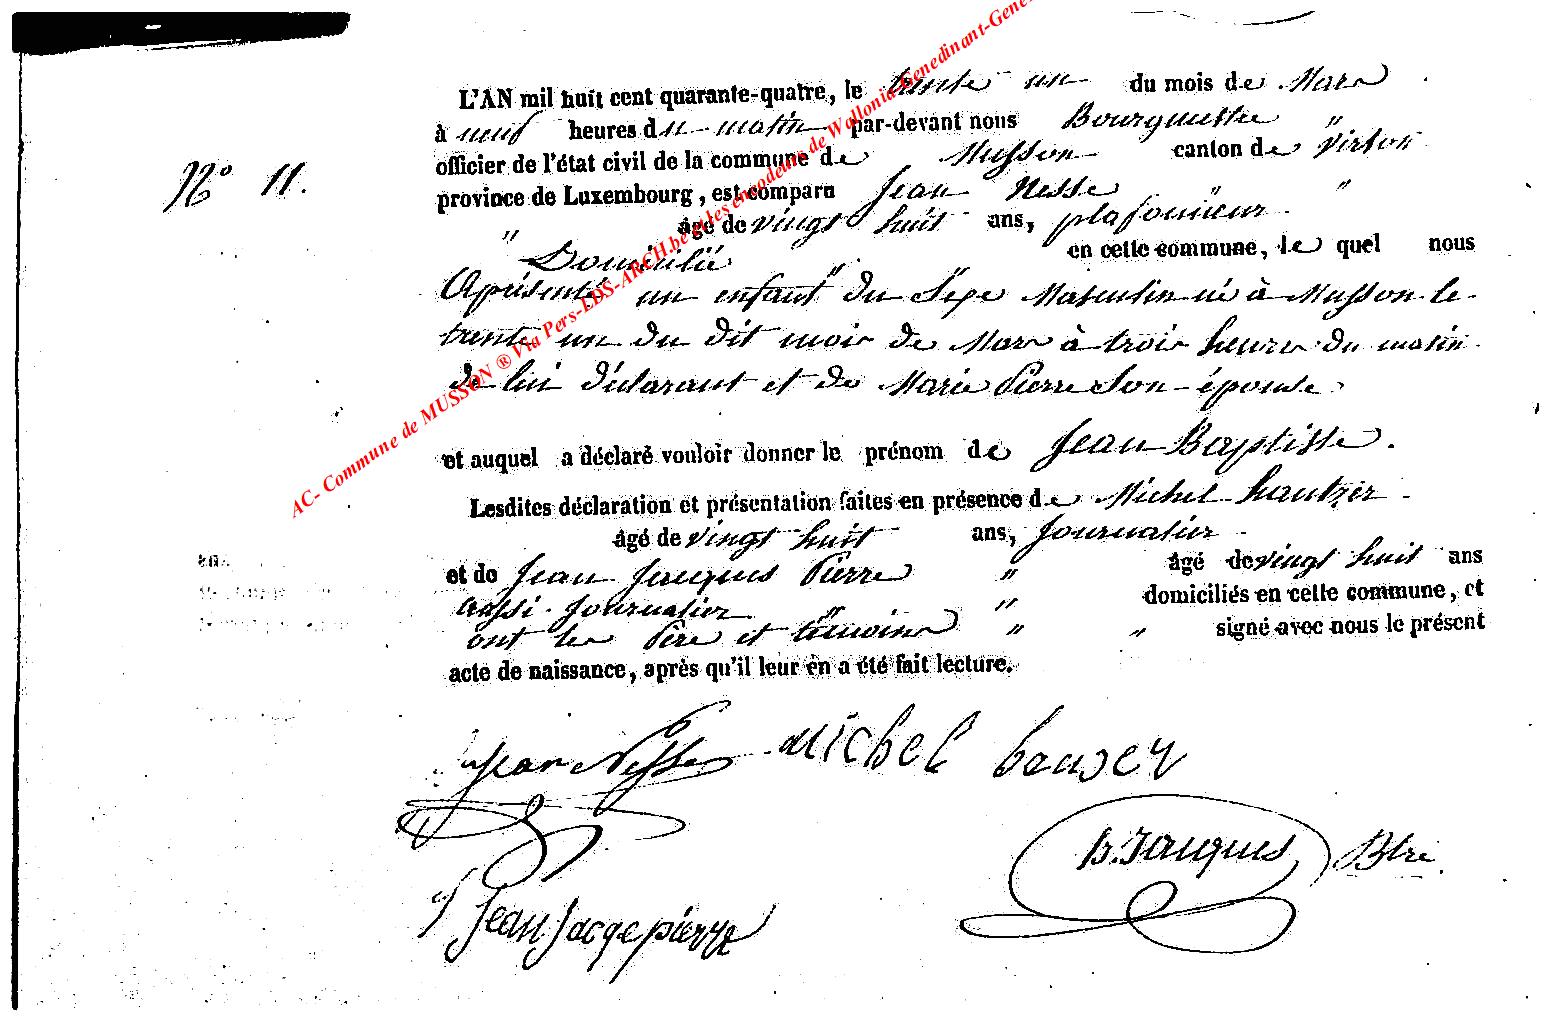 L'AN mil huit cent quarante-quatre, le trente un du mois de Mars
à neuf heures du matin par-devant nous Bourguemestre "
officier de l'état civil de la commune de Musson canton de Virton
N° 11.
province de Luxembourg, est comparu Jean Nesse " "
" âgé de vingt huit ans, plafonneur
Domicilié " " en cette commune, le quel nous
a présenté un enfant du Sexe Masculin né à Musson le
trente un du dit mois de Mars à trois heures du matin
de lui déclarant et de Marie Pierre Son épouse
et auquel a déclaré vouloir donner le prénom de Jean Baptiste.
Lesdites déclaration et présentation faites en présence de Michel
âgé de vingt huit ans, Journalier
et de Jean Jacques Pierre " âgé de vingt huit ans
aussi Journalier " " domiciliés en cette commune, et
ont les Père et témoins " " signé avec nous le présent
acte de naissance, après qu'il leur en a été fait lecture.
Jean Nesse Michel
B. Jacques Btre
Jean Jacqe pierre
AC- Commune de MUSSON ® Via Pers-LDS-ARCH.be et les encodeurs de Wallonia-Genedinant-Gene